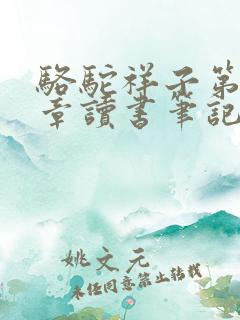 駱駝祥子第
章讀書筆記
姚文元
未经同意禁止转载